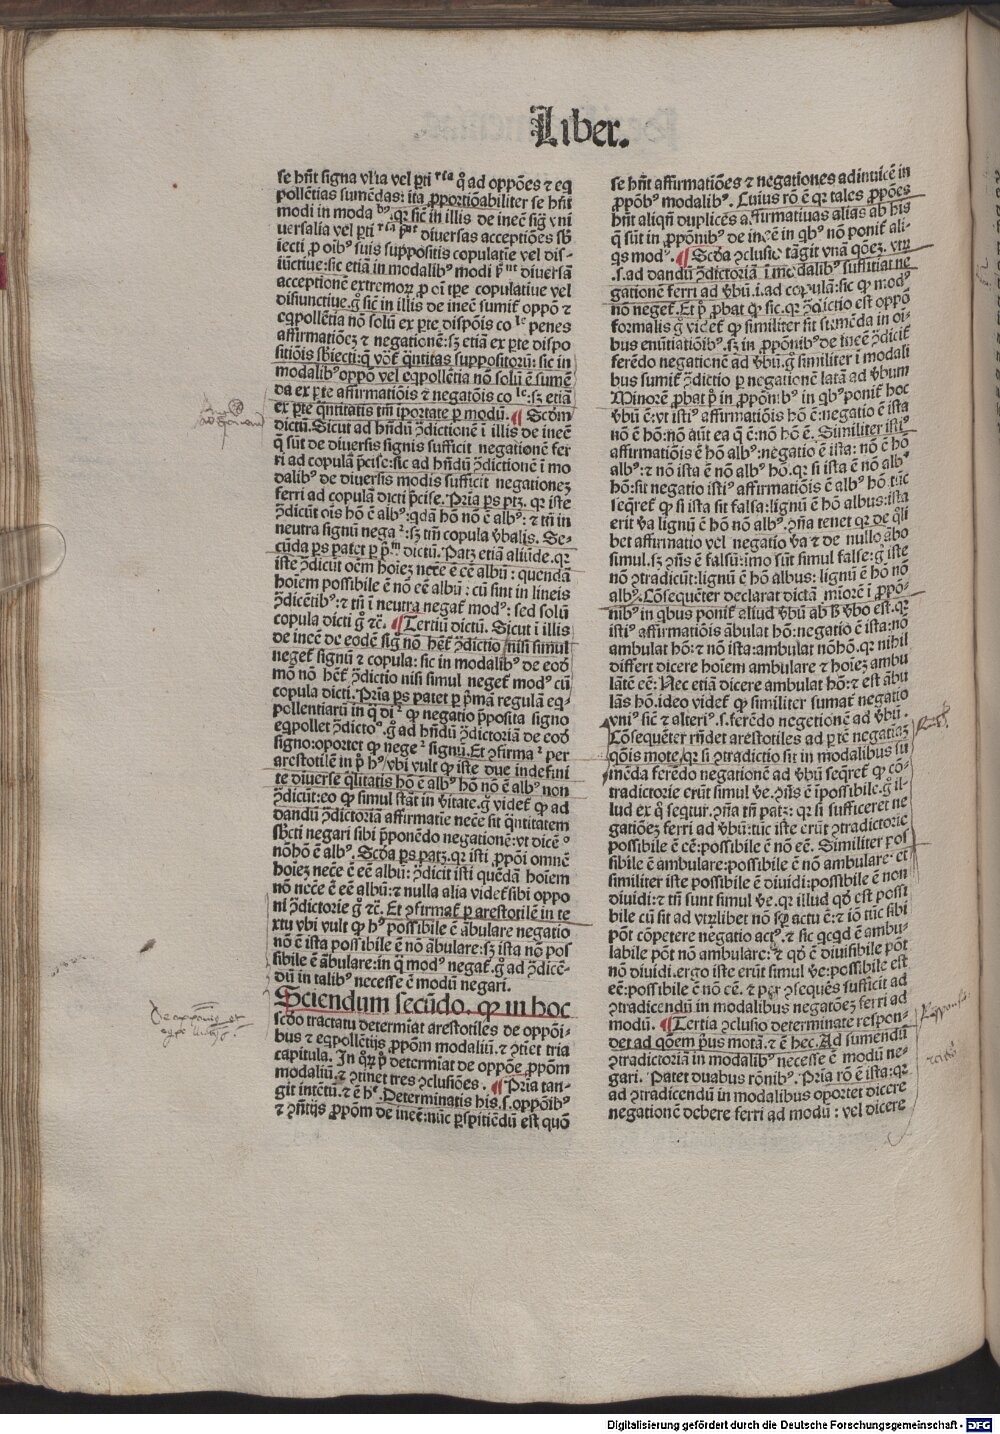 Liber.
se hñt signa vl̃ia vel ꝑti ʳᶜᵃ ꝗ̊ ad oppões ⁊ eq
pollẽtias sumẽdas: ita ꝓportiõabiliter se hñt
modi in moda bꝰ. qꝛ sic̃ in illis de inee͂ sig̃ vni
uersalia vel ꝑti ʳᶜᵃ pᵘᵗ diuersas acceptiões sb̃
iecti ꝓ oibꝰ suis suppositis copulatĩe vel dis-
iũctiue: sic etiã in modalibꝰ modi pᵘᵗ diuersã
acceptionẽ extremoꝝ ꝓ oĩ tꝑe copulatiue vel
disiunctiue. g̊ sic̃ in illis de inee͂ sumit̃ oppõ ⁊
eq̃pollẽtia nõ solũ ex ꝑte dispõis co ˡᵉ penes
affirmatiõeꝫ ⁊ negationẽ: sꝫ etiã ex ꝑte dispo
sitiõis sb̃iecti: q̃ võt̃ q̃ntitas suppositorũ: sic in
modalibꝰ oppõ vel eq̃pollẽtia nõ solũ ẽ sumẽ
da ex ꝑte affirmatiõis ⁊ negatõis co ˡᵉ: sꝫ etiã
ex ꝑte q̃ntitatis tm̃ ĩportate ꝑ modũ. ¶ Scd̃m
dictũ. Sicut ad hñdũ ꝯ̃dictionẽ ĩ illis de inee͂
q̃ sũt de diuersis signis sufficit negationẽ fer
ri ad copulã p̃cise: sic ad hñdũ ꝯ̃dictionẽ ĩ mo
dalibꝰ de diuersis modis sufficit negationeꝫ
ferri ad copulã dicti p̃cise. Pria ꝑs ptꝫ. qꝛ iste
ꝯ̃dicũt oĩs hõ ẽ albꝰ: qdã hõ nõ ẽ albꝰ: ⁊ tñ in
neutra signũ nega ᵗ: sꝫ tm̃ copula v̾balis. Se-
cũda ꝑs patet ꝑ p̃ ᵐ dictũ. Patꝫ etiã aliũde. qꝛ
iste ꝯ̃dicũt oẽm hoieꝫ nec̃e ẽ eẽ albũ: quendã
hoiem possibile ẽ nõ eẽ albũ: cũ sint in lineis
ꝯ̃dicẽtibꝰ: ⁊ tñ ĩ neutra negat̃ modꝰ: sed solũ
copula dicti g̊ ⁊c̃. ¶ Tertiũ dictũ. Sicut ĩ illis
de inee͂ de eodẽ sig̃ nõ hẽt̃ ꝯ̃dictio nisi simul
neget̃ signũ ⁊ copula: sic in modalibꝰ de eod̃
mõ nõ hẽt̃ ꝯ̃dictio nisi simul neget̃ modꝰ cũ
copula dicti. Pria ꝑs patet ꝑ p̃mã regulã eq̃-
pollentiarũ in q̃ di ᵗ qꝙ negatio p̃posita signo
eq̃pollet ꝯ̃dicto ᵒ. g̊ ad hñdũ ꝯ̃dictoriã de eod̃
signo: oportet qꝙ nege ᵗ signũ. Et ꝯfirma ᵗ per
arestotilẽ in p̃ hꝰ vbi vult qꝙ iste due indefini
te diuerse q̃litatis hõ ẽ albꝰ hõ nõ ẽ albꝰ non
ꝯ̃dicũt: eo qꝙ simul stãt in v̾itate. g̊ videt̃ qꝙ ad
dandũ ꝯ̃dictoriã affirmatĩe nec̃e sit q̃ntitatem
sb̃cti negari sibi p̃ponẽdo negationẽ: vt dicẽ °
nõhõ ẽ albꝰ. Scd̃a ꝑs patꝫ. qꝛ isti ꝓpõi omnẽ
hoieꝫ nec̃e ẽ eẽ albũ: ꝯ̃dicit isti quẽdã hoiem
nõ nec̃e ẽ eẽ albũ: ⁊ nulla alia videt̃ sibi oppo
ni ꝯ̃dictorie g̊ ⁊c̃. Et ꝯfirmat̃ ꝑ arestotilẽ in te
xtu vbi vult qꝙ hꝰ possibile ẽ ãbulare negatio
nõ ẽ ista possibile ẽ nõ ãbulare: sꝫ ista nõ pos
sibile ẽ ãbulare: in q̃ modꝰ negat̃. g̊ ad ꝯ̃dicẽ-
dũ in talibꝰ necesse ẽ modũ negari.
Sciendum secũdo. qꝙ in hoc
scd̃o tractatu determĩat arestotiles de oppõi-
bus ⁊ eq̃pollẽtijs ꝓpõm modaliũ. ⁊ ꝯtinet tria
capitula. In q̃ꝝ p̃ determĩat de oppõe ꝓpõm
modaliũ. ⁊ ꝯtinet tres ꝯclusiões. ¶ Pria tan-
git intẽtũ. ⁊ ẽ hᵉ. Determinatis his. s. oppõibꝰ
⁊ ꝯñtijs ꝓpõm de inee͂: nũc ꝑspitiẽdũ est quõ
se hñt affirmatiões ⁊ negationes adinuicẽ in
ꝓpõbꝰ modalibꝰ. Cuius rõ ẽ qꝛ tales ꝓpões
hñt aliqñ duplices affirmatiuas alias ab his
q̃ sũt in ꝓpõnibꝰ de inee͂ in qbꝰ nõ ponit̃ ali-
qs modꝰ. ¶ Scd̃a ꝯclusio tãgit vnã qõeꝫ. vtꝝ
.s. ad dandũ ꝯ̃dictoriã ĩ modalibꝰ suffitiat ne
gationẽ ferri ad v̾bũ. i. ad copulã: sic qꝙ modꝰ
nõ neget̃. Et p̃ ꝓbat qꝙ sic. qꝛ ꝯ̃dictio est oppõ
formalis g̊ videt̃ qꝙ similiter sit sumẽda in oĩ-
bus enũtiatiõibꝰ. sꝫ in ꝓpõnibꝰ de inee͂ ꝯ̃dicit̃
ferẽdo negationẽ ad v̾bũ. g̊ similiter ĩ modali
bus sumit̃ ꝯ̃dictio ꝑ negationẽ latã ad v̾bum
Minorẽ ꝓbat p̃ in ꝓpõnibꝰ in qbꝰ ponit̃ hoc
v̾bũ ẽ: vt istiꝰ affirmatiõis hõ ẽ: negatio ẽ ista
nõ ẽ hõ: nõ aũt ea q̃ ẽ: nõ hõ ẽ. Similiter istiꝰ
affirmatiõis ẽ hõ albꝰ: negatio ẽ ista: nõ ẽ hõ
albꝰ: ⁊ nõ ista ẽ nõ albꝰ hõ. qꝛ si ista ẽ nõ albꝰ
hõ: sit negatio istiꝰ affirmatiõis ẽ albꝰ hõ. tũc
seq̃ret̃ qꝙ si ista sit falsa: lignũ ẽ hõ albus: ista
erit v̾a lignũ ẽ hõ nõ albꝰ. ꝯña tenet qꝛ de q̃li
bet affirmatio vel negatio v̾a ⁊ de nullo ãbo
simul. sꝫ ꝯñs ẽ falsũ: imo sũt simul false: g̊ iste
nõ ꝯtradicũt: lignũ ẽ hõ albus: lignũ ẽ hõ nõ
albꝰ. Cõsequẽter declarat dictã miorẽ ĩ ꝓpõ-
nibꝰ in qbus ponit̃ aliud v̾bũ ab h̾ v̾bo est. qꝛ
istiꝰ affirmatiõis ãbulat hõ: negatio ẽ ista: nõ
ambulat hõ: ⁊ nõ ista: ambulat nõhõ. qꝛ nihil
differt dicere hoiem ambulare ⁊ hoieꝫ ambu
lãtẽ eẽ: Nec etiã dicere ambulat hõ: ⁊ est ãbu
lãs hõ. ideo videt̃ qꝙ similiter sumat̃ negatio
vniꝰ sic̃ ⁊ alteriꝰ. s. ferẽdo negetionẽ ad v̾bũ.
Cõsequẽter rñdet arestotiles ad ꝑtẽ negatiaꝫ
qõis mote. qꝛ si ꝯtradictio sit in modalibus su
mẽda ferẽdo negationẽ ad v̾bũ seq̃ret̃ qꝙ cõ-
tradictorie erũt simul v̾e. ꝯñs ẽ ĩpossibile. g̊ il-
lud ex q̃ seqtur. ꝯñã tñ patꝫ: qꝛ si sufficeret ne
gatiõeꝫ ferri ad v̾bũ: tũc iste erũt ꝯtradictorie
possibile ẽ eẽ: possibile ẽ nõ eẽ. Similiter pos
sibile ẽ ambulare: possibile ẽ nõ ambulare. et
similiter iste possibile ẽ diuidi: possibile ẽ non
diuidi: ⁊ tñ sunt simul v̾e. qꝛ illud qd̾ est possi
bile cũ sit ad vtꝝlibet nõ sp̃ actu ẽ: ⁊ iõ tũc sibi
põt cõpetere negatio actꝰ. ⁊ sic qcqd ẽ ambu-
labile põt nõ ambulare: ⁊ qd̾ ẽ diuisibile põt
nõ diuidi. ergo iste erũt simul v̾e: possibile est
eẽ: possibile ẽ nõ eẽ. ⁊ per ꝯsequẽs sufficit ad
ꝯtradicendũ in modalibus negatõeꝫ ferri ad
modũ. ¶ Tertia ꝯclusio determinate respon-
det ad qõem p̃us motã. ⁊ ẽ hec. Ad sumendũ
ꝯtradictoriã in modalibꝰ necesse ẽ modũ ne-
gari. Patet duabus rõnibꝰ. Pria rõ ẽ ista: qꝛ
ad ꝯtradicendũ in modalibus oportet dicere
negationẽ debere ferri ad modũ: vel dicere
Digitalisierung gefördert durch die Deutsche Forschungsgemeinschaft - DFG